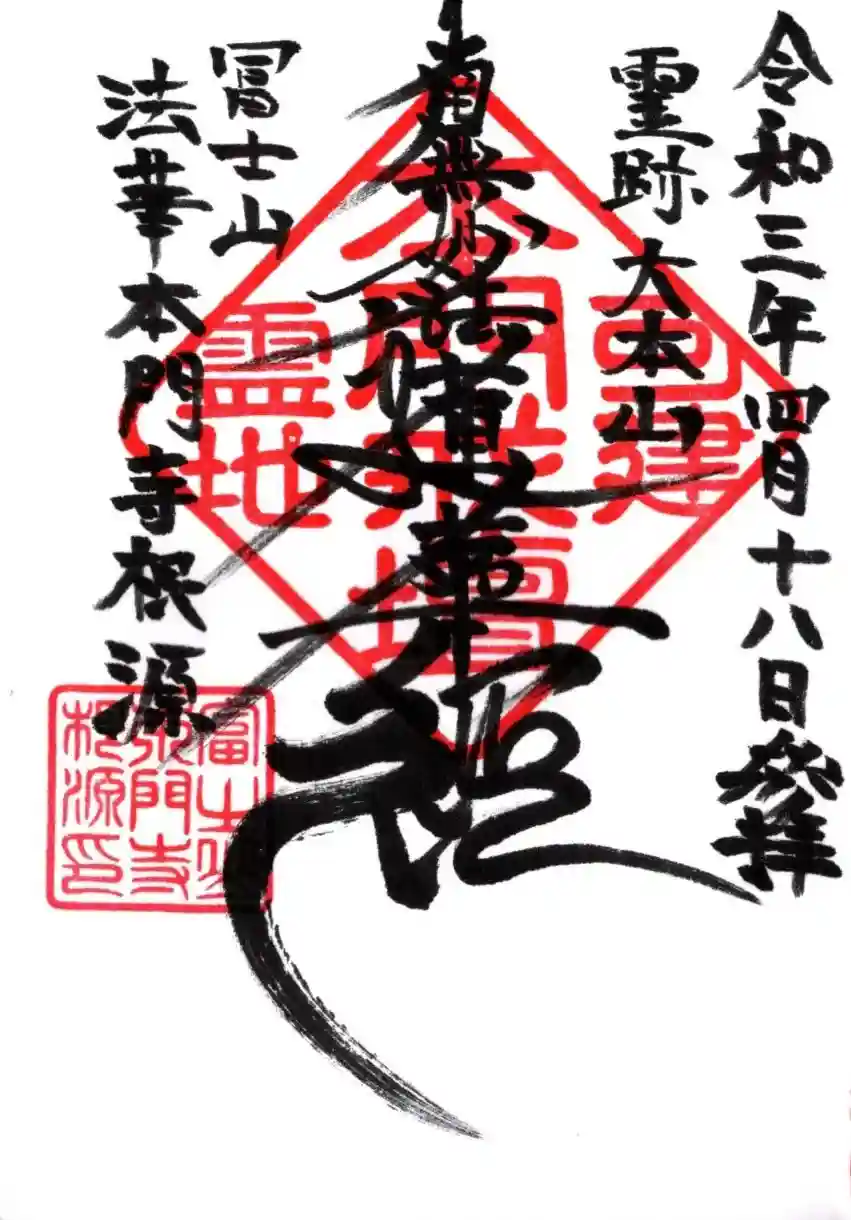 令和三年四月十八日参拝
霊跡 大本山
南無妙法蓮華経
冨士山
法華本門寺根源
可建
本門戒壇
霊地
本門寺
根源印